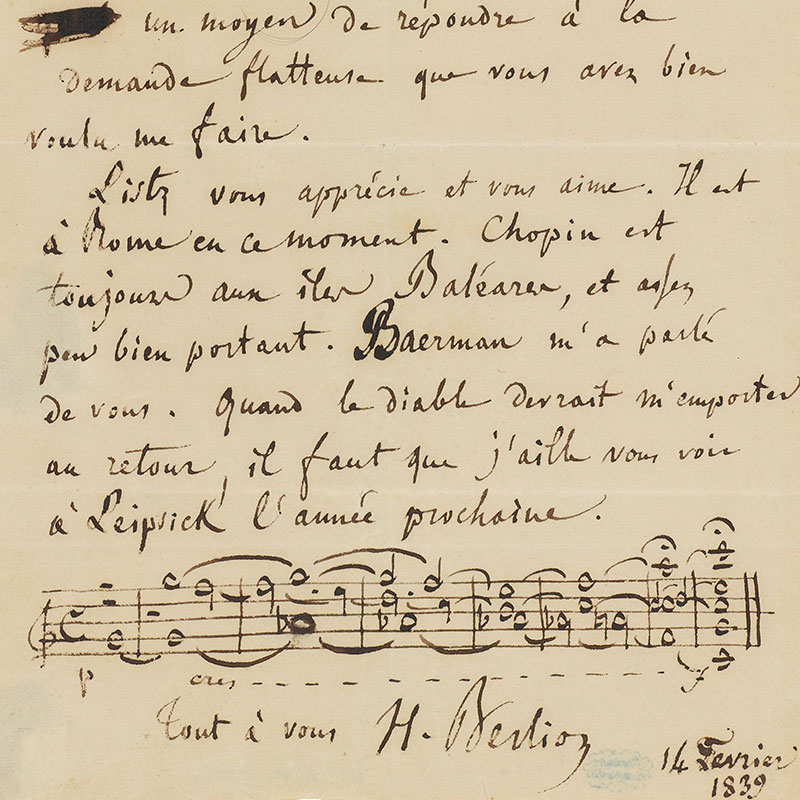 un moyen de répondre à la
Demande flatteuse que vous avez bien
voulu me faire.
Listz vous apprécie et vous aime. Il est
à Rome en ce moment. Chopin est
toujours aux îles Baléares, et assez
peu bien portant. Baerman m'a parlé
de vous. Quand le diable devrait m'emporter
au retour, il faut que j'aille vous voir
à Leipsick l'année prochaine.
p cres f
Tout à vous H. Berlioz
14 Fevrier
1839